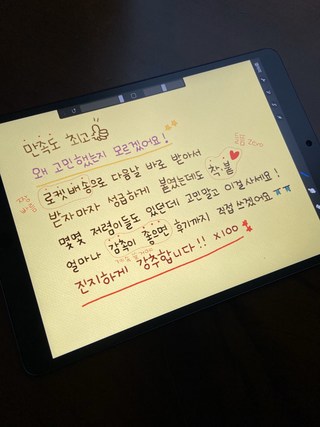 만족도 최고
왜 고민했는지 모르겠어요!
로켓배송으로 다음날 바로 받아서
받자마자 성급하게 붙였는데도 착-붙
몇몇 저렴이들도 있던데 고민말고 이걸 사세요! ㅠㅠ
얼마나 감촉이 좋으면 후기까지 직접 쓰겠어요
진지하게 강추합니다!! x100